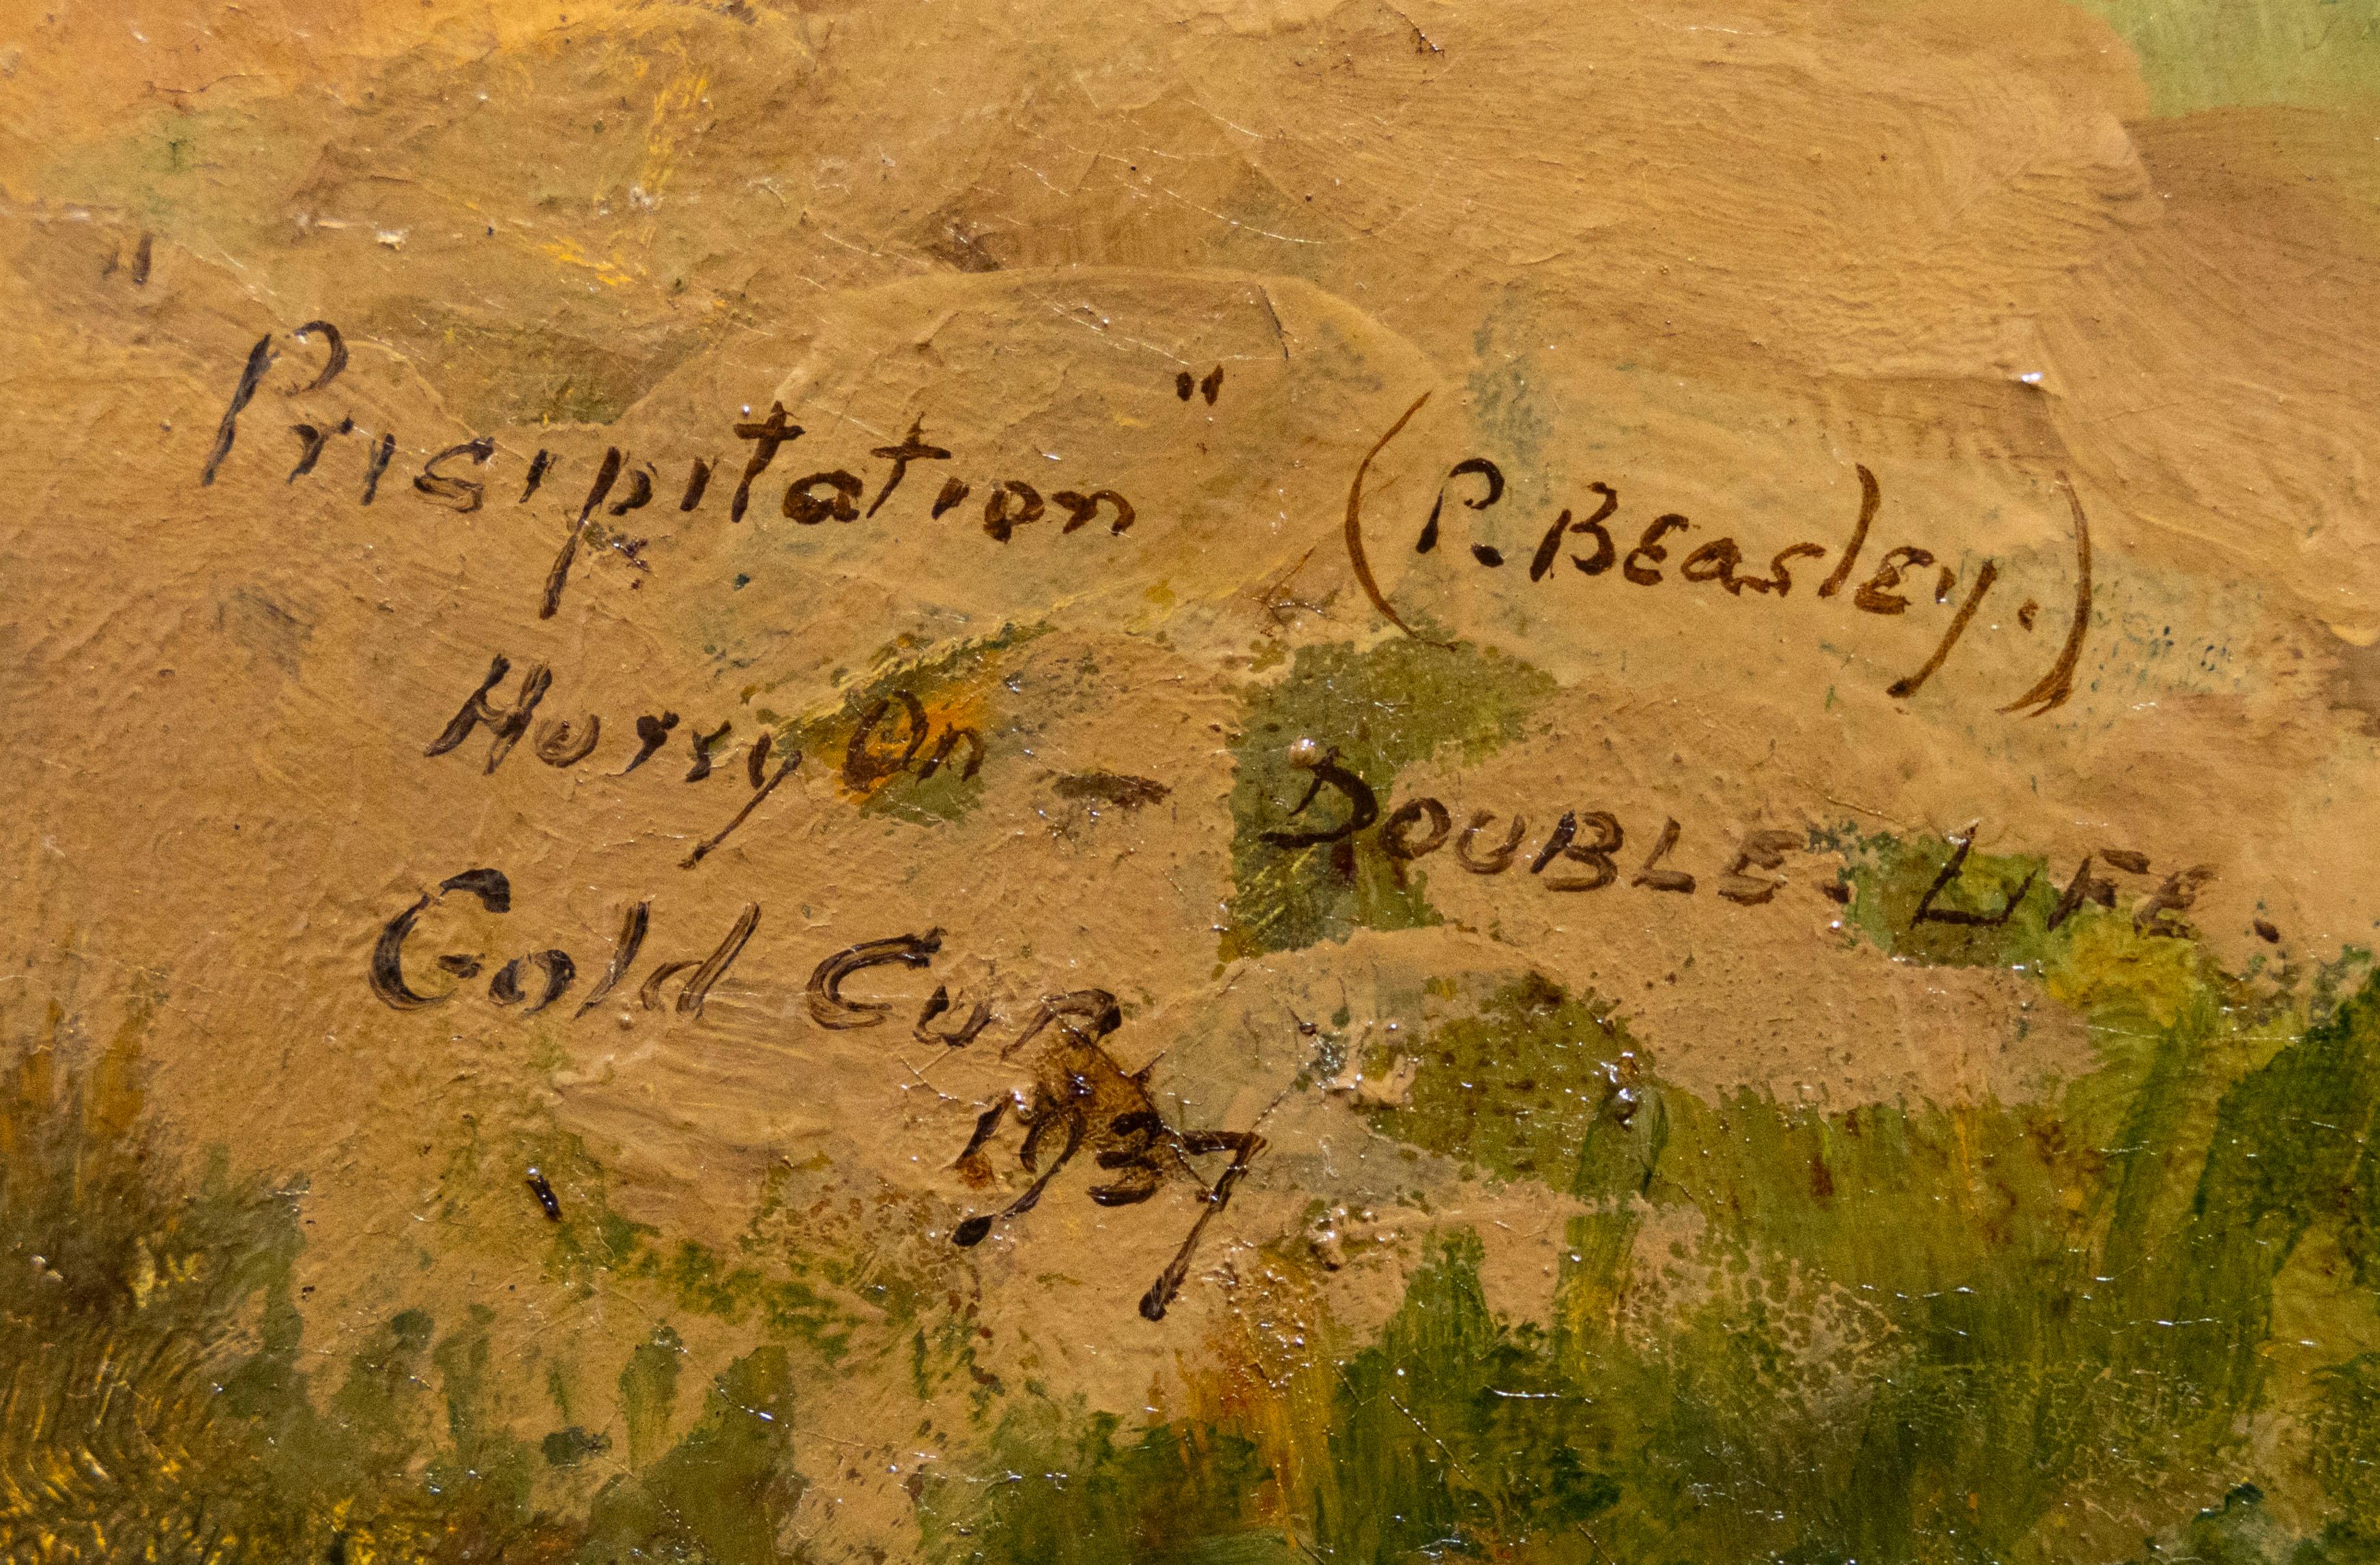 "Prisipitation" (P. Beasley.)
Hurry On — Double. Life.
Gold Cup
1937